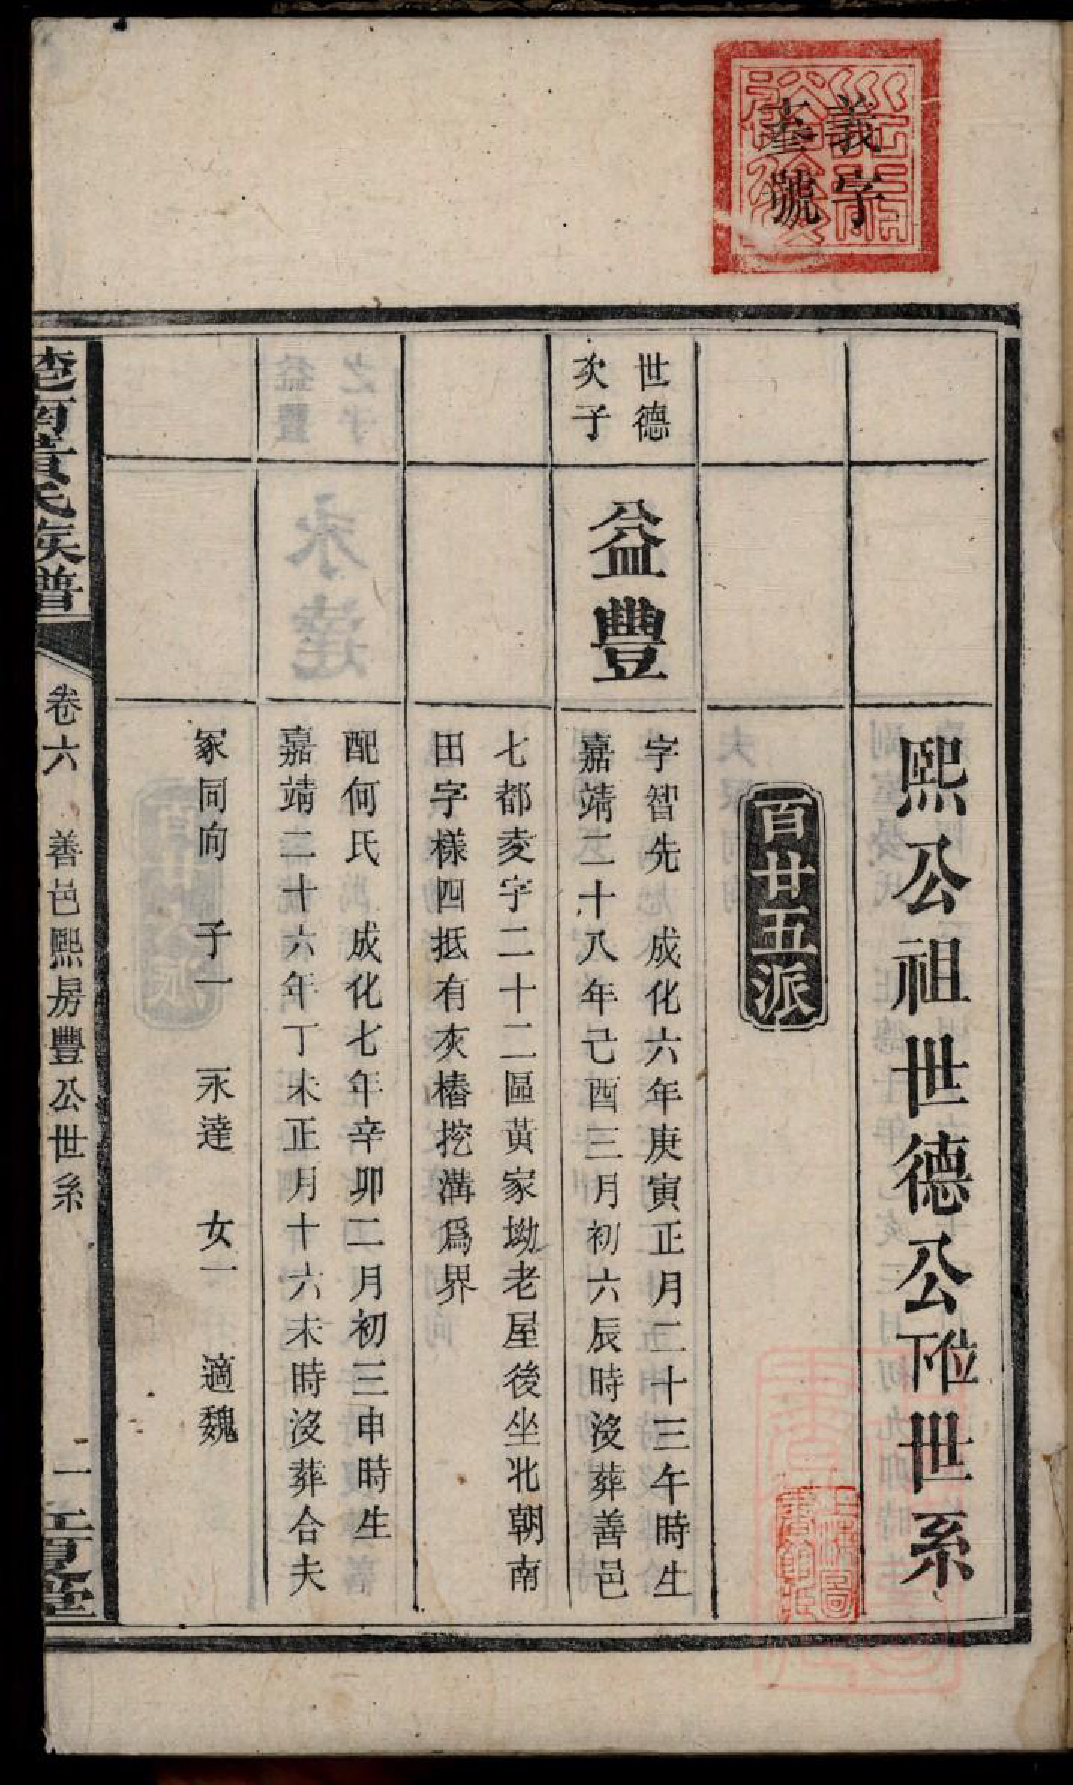 義字
壹號
熙公祖世德公下位世系
百廿五派
世德
次子
益豐
字智先 成化六年庚寅正月二十三午時生
嘉靖二十八年己酉三月初六辰時沒葬善邑
七都菱字二十二區黃家坳老屋後坐北朝南
田字樣四抵有灰樁挖溝爲界
配何氏 成化七年辛卯二月初三申時生
嘉靖二十六年丁未正月十六未時沒葬合夫
冢同向 子一 永達 女一 適魏
楚南黃氏族譜
卷六 善邑熙房豐公世系
一 江夏堂